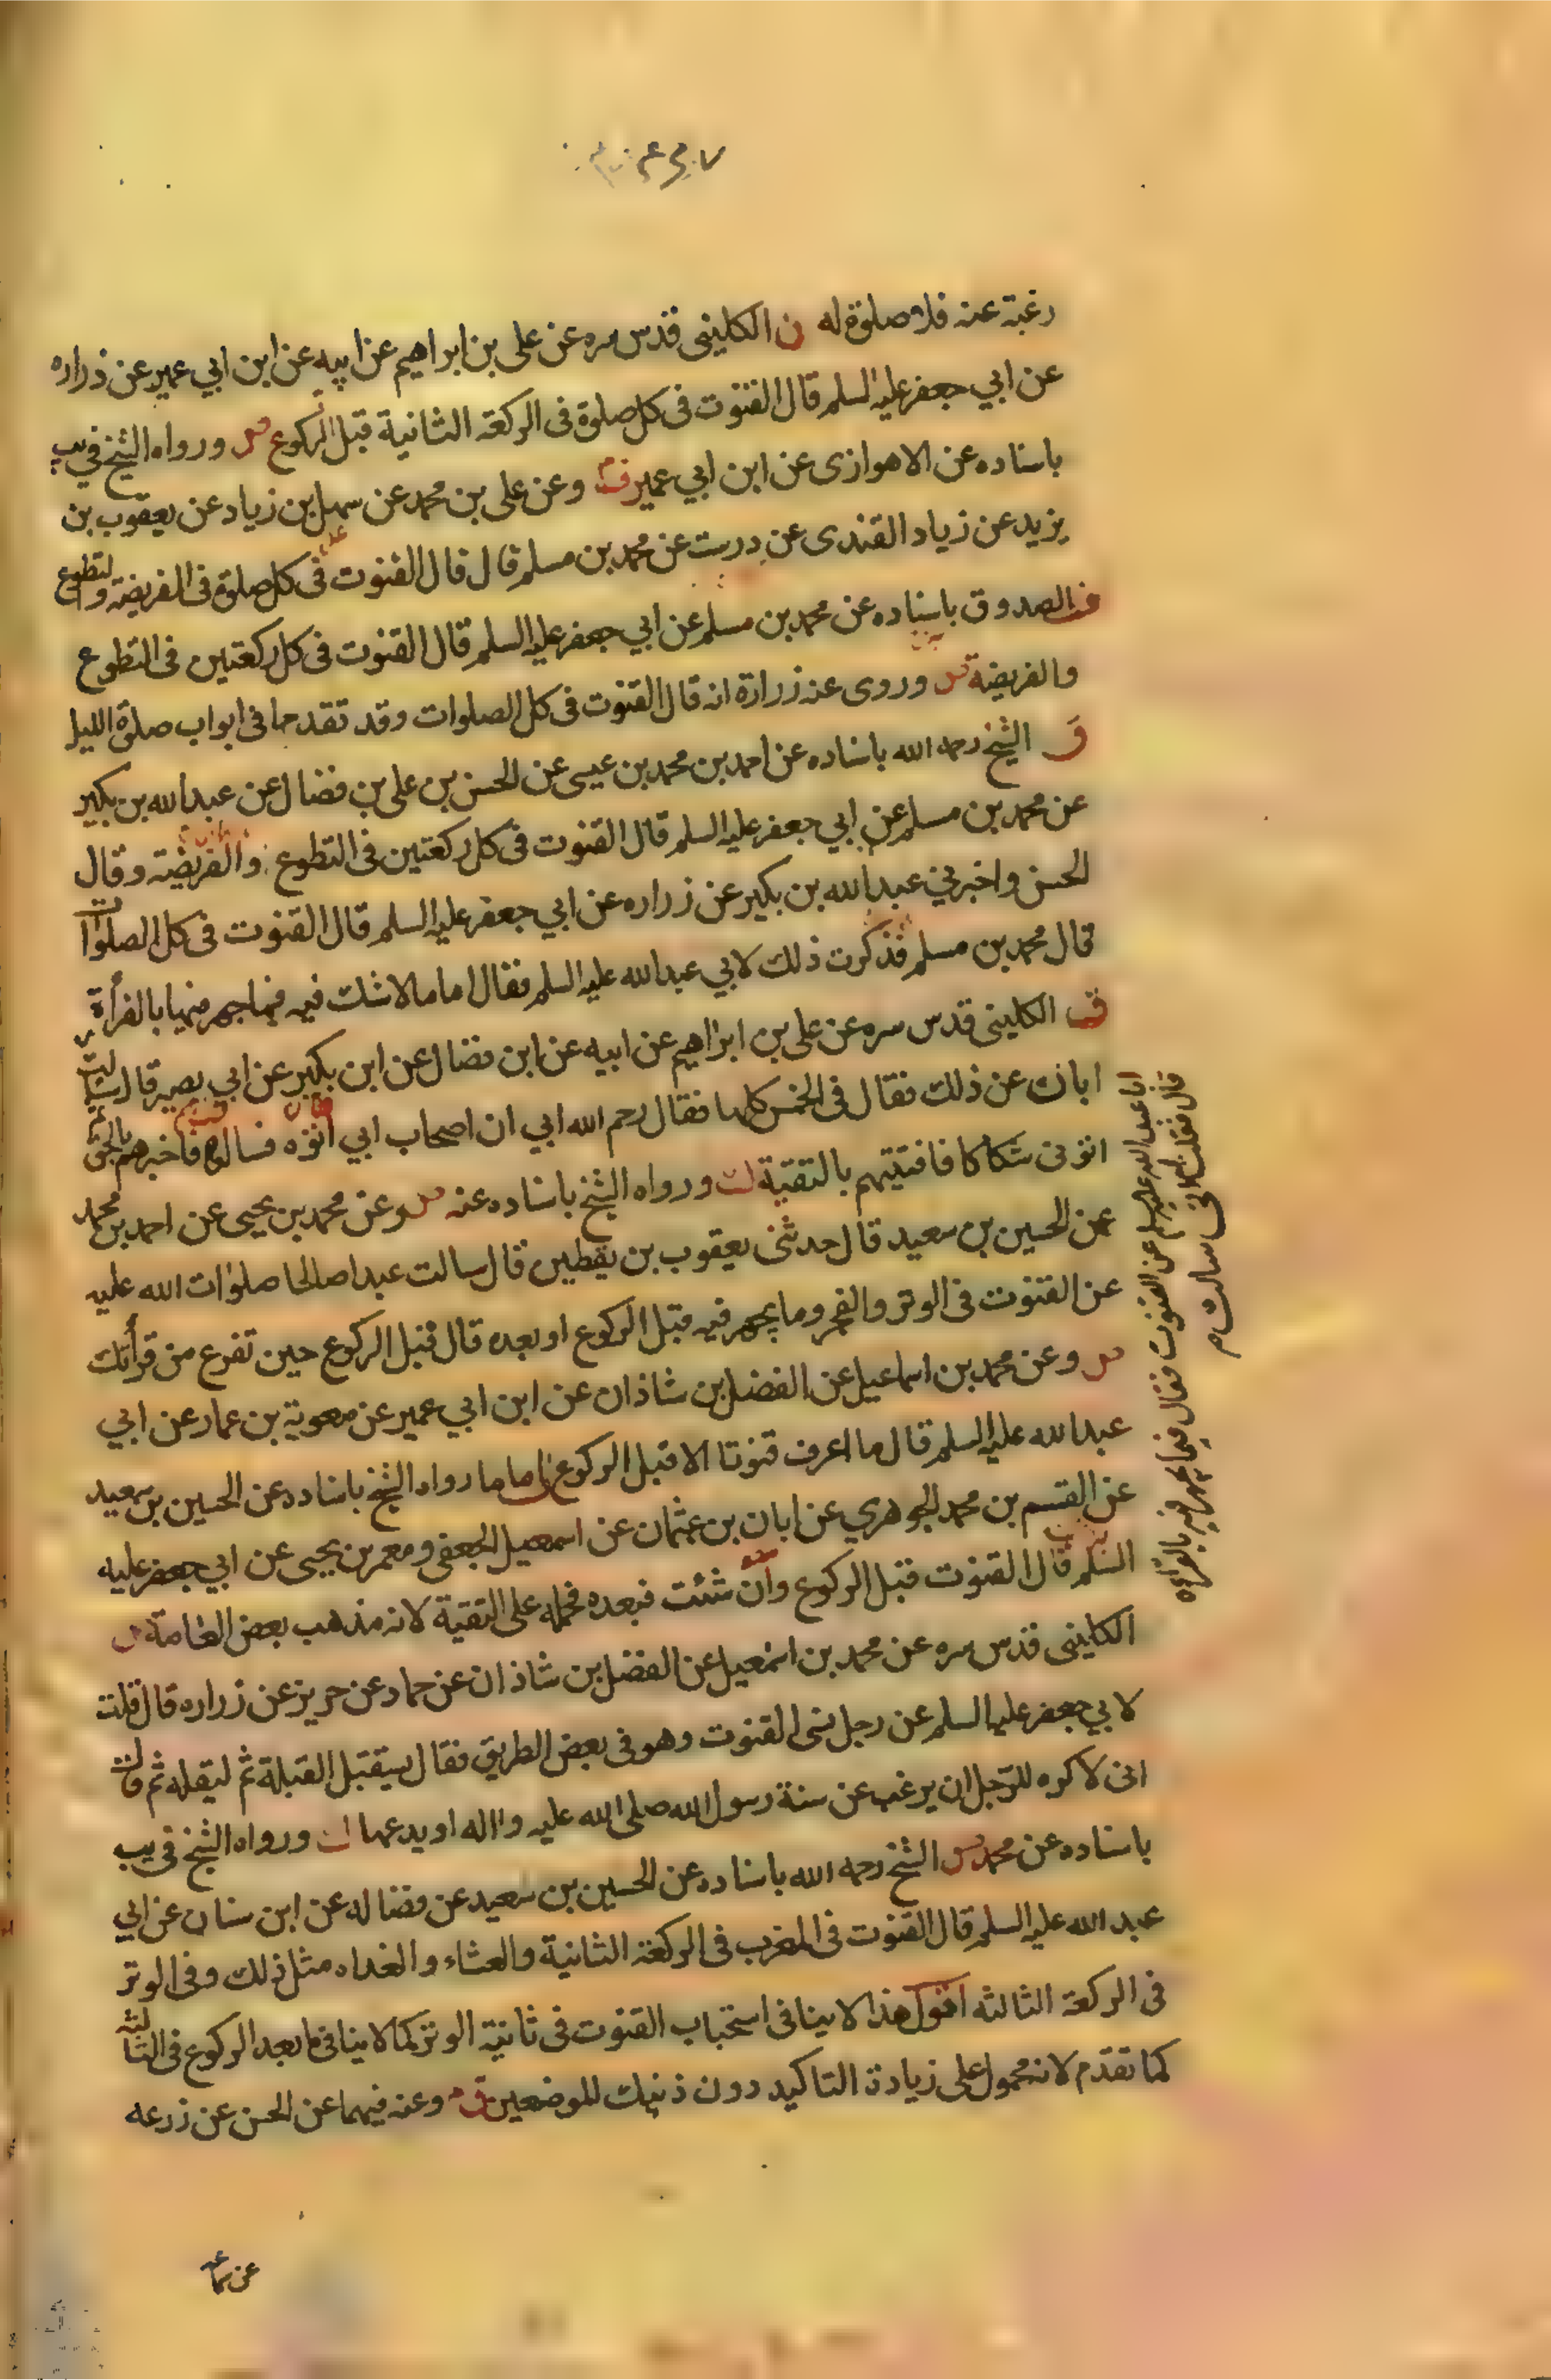 رغبة عنه فلا صلوة له ن الكلينى قدس سره عن على بن ابراهيم عن ابيه عن ابن ابي عمير عن زراره
عن ابي جعفر عليه السلم قال القنوت فى كل صلوة فى الركعة الثانية قبل الركوع ورواه الشيخ في يب
باسناده عن الاهوازى عن ابن ابي عمير وعن على بن محمد عن سهل بن زياد عن يعقوب بن
يزيد عن زياد القندى عن درست عن محمد بن مسلم قال قال القنوت فى كل صلوة فى الفريضة والتطوع
الصدوق باسناده عن محمد بن مسلم عن ابي جعفر عليه السلم قال القنوت فى كل ركعتين فى التطوع
والفريضة وروى عنه زرارة انه قال القنوت فى كل الصلوات وقد تقدما فى ابواب صلوة الليل
الشيخ رحمه الله باسناده عن احمد بن محمد بن عيسى عن الحسن بن على بن فضال عن عبد الله بن بكير
عن محمد بن مسلم عن ابي جعفر عليه السلم قال القنوت فى كل ركعتين فى التطوع والفريضة وقال
الحسن واخبرني عبد الله بن بكير عن زراره عن ابي جعفر عليه السلم قال القنوت فى كل الصلوات
قال محمد بن مسلم فذكرت ذلك لابي عبد الله عليه السلم فقال اما مالا شك فيه فما جهر فيها بالقرأة
الكلينى قدس سره عن على بن ابراهيم عن ابيه عن ابن فضال عن ابن بكير عن ابي بصير قال سالت
ابا عبد الله عليه السلم عن القنوت فقال فيما يجهر فيه بالقراءه
قال فقلت له انى سالت
اباك عن ذلك فقال فى الخمس كلها فقال رحم الله ابي ان اصحاب ابي اتوه فسالوه فاخبرهم بالحق ثم
اتونى شكاكا فافتيتهم بالتقية ورواه الشيخ باسناده عنه وعن محمد بن يحيى عن احمد بن محمد
عن الحسين بن سعيد قال حدثنى يعقوب بن يقطين قال سالت عبدا صالحا صلوات الله عليه
عن القنوت فى الوتر والفجر وما يجهر فيه قبل الركوع او بعده قال قبل الركوع حين تفرع من قرأتك
وعن محمد بن اسماعيل عن الفضل بن شاذان عن ابن ابي عمير عن معوية بن عمار عن ابي
عبد الله عليه السلم قال ما اعرف قنوتا الا قبل الركوع اما ما رواه الشيخ باسناده عن الحسين بن سعيد
عن القسم بن محمد الجوهري عن ابان بن عثمان عن اسمعيل الجعفى ومعمر بن يحيى عن ابي جعفر عليه
السلم قال القنوت قبل الركوع وان شئت فبعده فحمله على التقية لانه مذهب بعض العامة
الكلينى قدس سره عن محمد بن اسمعيل عن الفضل بن شاذان عن حماد عن حريز عن زراره قال قلت
لابي جعفر عليه السلم عن رجل نسى القنوت وهو فى بعض الطريق فقال يستقبل القبلة ثم ليقله ثم قال
انى لاكره للرجل ان يرغب عن سنة رسول الله صلى الله عليه واله او يدعها ورواه الشيخ فى يب
باسناده عن محمد الشيخ رحمه الله باسناده عن الحسين بن سعيد عن فضاله عن ابن سنان عن ابي
عبد الله عليه السلم قال القنوت فى المغرب فى الركعة الثانية والعشاء والغداه مثل ذلك وفى الوتر
فى الركعة الثالثه اقول هذا لا ينافى استحباب القنوت فى ثانية الوتر كما لا ينافى ما بعد الركوع فى الثالثة
كما تقدم لانه محمول على زيادة التاكيد دون ذينك الموضعين وعنه فيهما عن الحسن عن زرعه
عن سماعه